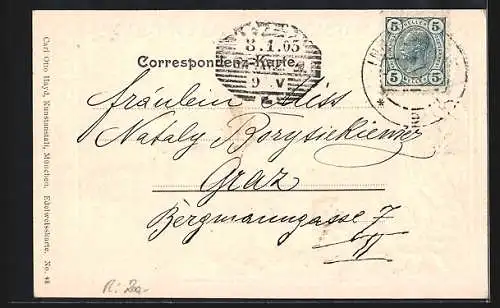 Correspondenz-Karte.
3.1.05
9 V
5 HELLER 5
5 5
Fräulein Miss
Nataly Borysiekiemez
Graz
Bergmanngasse 7
II
Carl Otto Hayd, Kunstanstalt, München, Edelweisskarte, No. 48